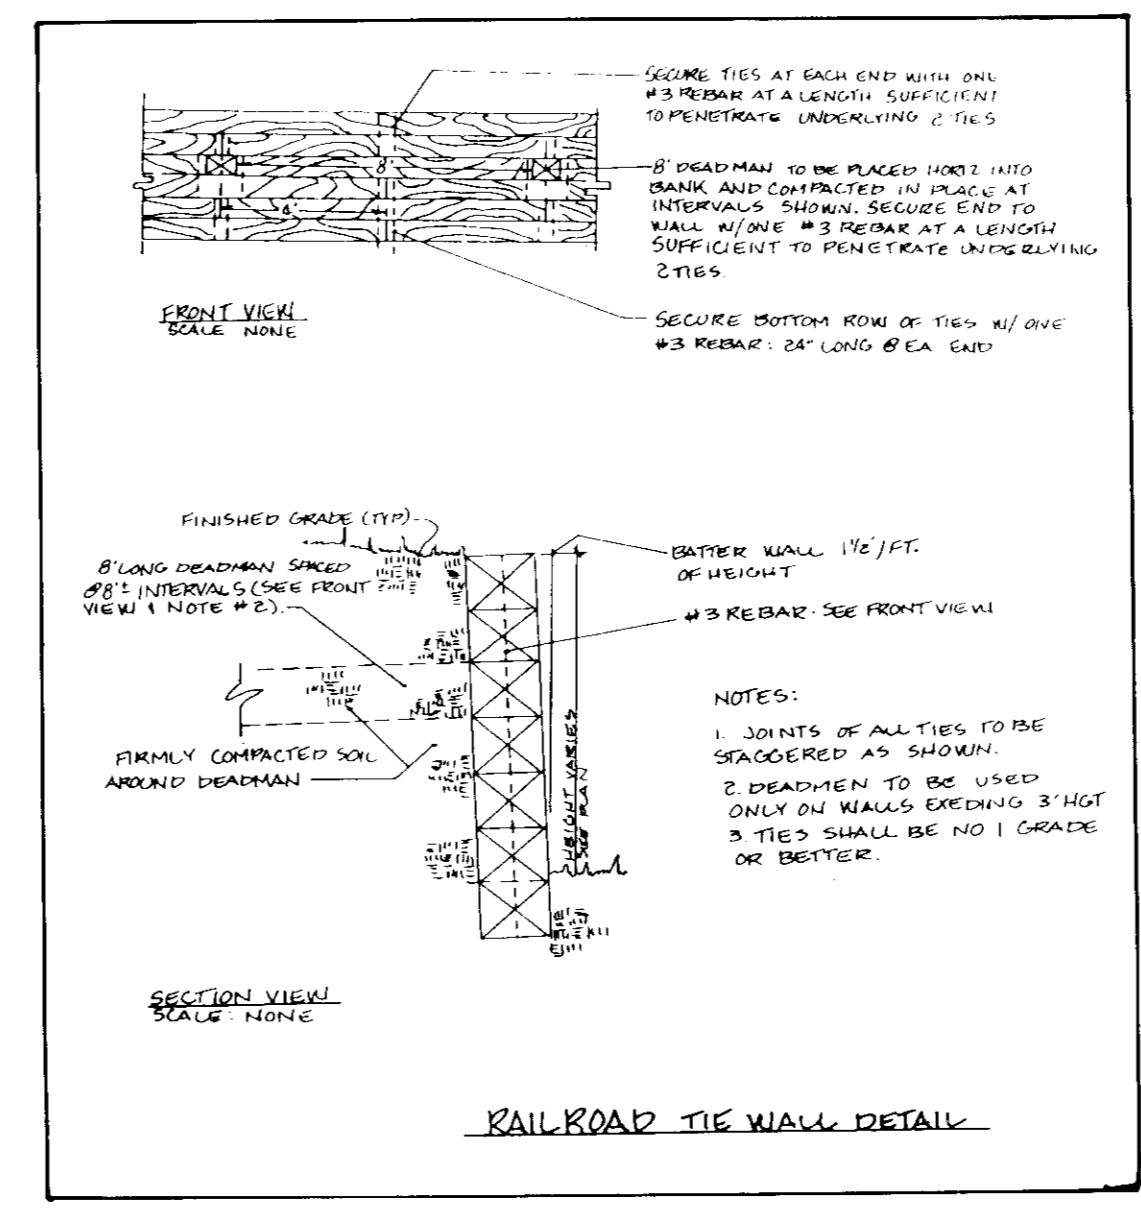 SECURE TIES AT EACH END WITH ONE
#3 REBAR AT A LENGTH SUFFICIENT
TO PENETRATE UNDERLYING 2 TIES
8' DEADMAN TO BE PLACED HORIZ INTO
BANK AND COMPACTED IN PLACE AT
INTERVALS SHOWN. SECURE END TO
WALL W/ONE #3 REBAR AT A LENGTH
SUFFICIENT TO PENETRATE UNDERLYING
2 TIES.
8'
4'
FRONT VIEW
SCALE NONE
SECURE BOTTOM ROW OF TIES W/ ONE
#3 REBAR: 24" LONG @ EA END
FINISHED GRADE (TYP)
8' LONG DEADMAN SPACED
@8'± INTERVALS (SEE FRONT
VIEW & NOTE #2).
BATTER WALL 1½"/FT.
OF HEIGHT
#3 REBAR. SEE FRONT VIEW
FIRMLY COMPACTED SOIL
AROUND DEADMAN
HEIGHT VARIES
SEE PLAN
NOTES:
1. JOINTS OF ALL TIES TO BE
STAGGERED AS SHOWN.
2. DEADMEN TO BE USED
ONLY ON WALLS EXEDING 3' HGT
3. TIES SHALL BE NO 1 GRADE
OR BETTER.
SECTION VIEW
SCALE: NONE
RAILROAD TIE WALL DETAIL